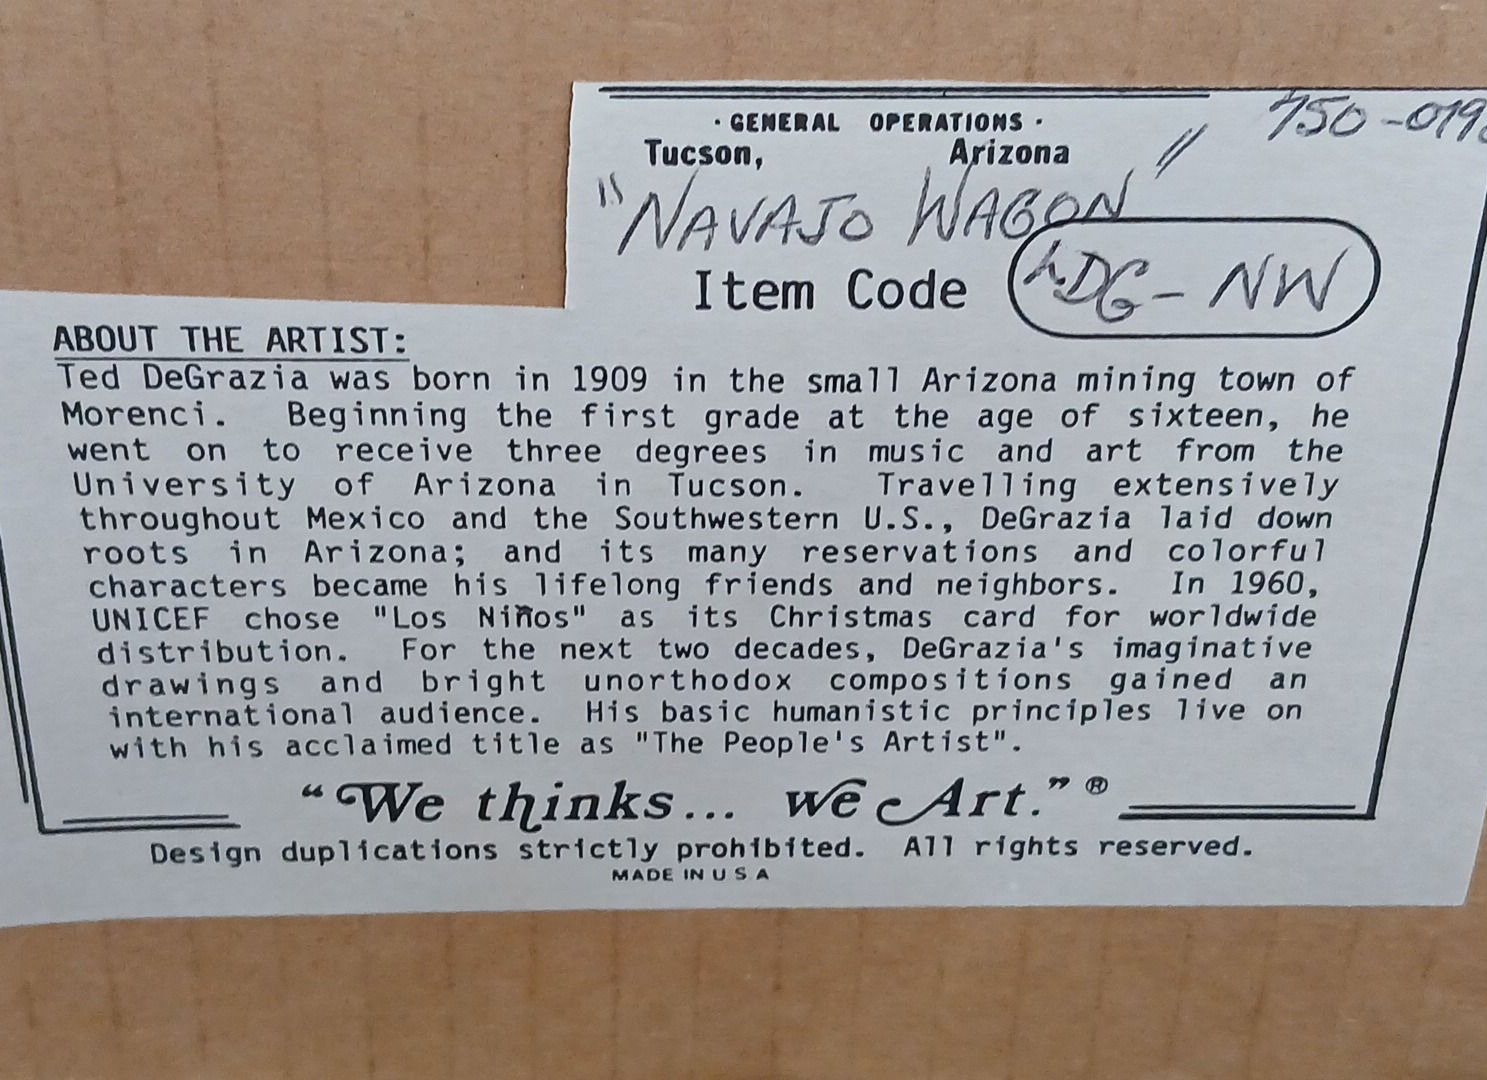 · GENERAL OPERATIONS ·
Tucson, Arizona
"NAVAJO WAGON"
Item Code DG-NW
ABOUT THE ARTIST:
Ted DeGrazia was born in 1909 in the small Arizona mining town of
Morenci. Beginning the first grade at the age of sixteen, he
went on to receive three degrees in music and art from the
University of Arizona in Tucson. Travelling extensively
throughout Mexico and the Southwestern U.S., DeGrazia laid down
roots in Arizona; and its many reservations and colorful
characters became his lifelong friends and neighbors. In 1960,
UNICEF chose "Los Niños" as its Christmas card for worldwide
distribution. For the next two decades, DeGrazia's imaginative
drawings and bright unorthodox compositions gained an
international audience. His basic humanistic principles live on
with his acclaimed title as "The People's Artist".
“We thinks... we Art.”®
Design duplications strictly prohibited. All rights reserved.
MADE IN U S A